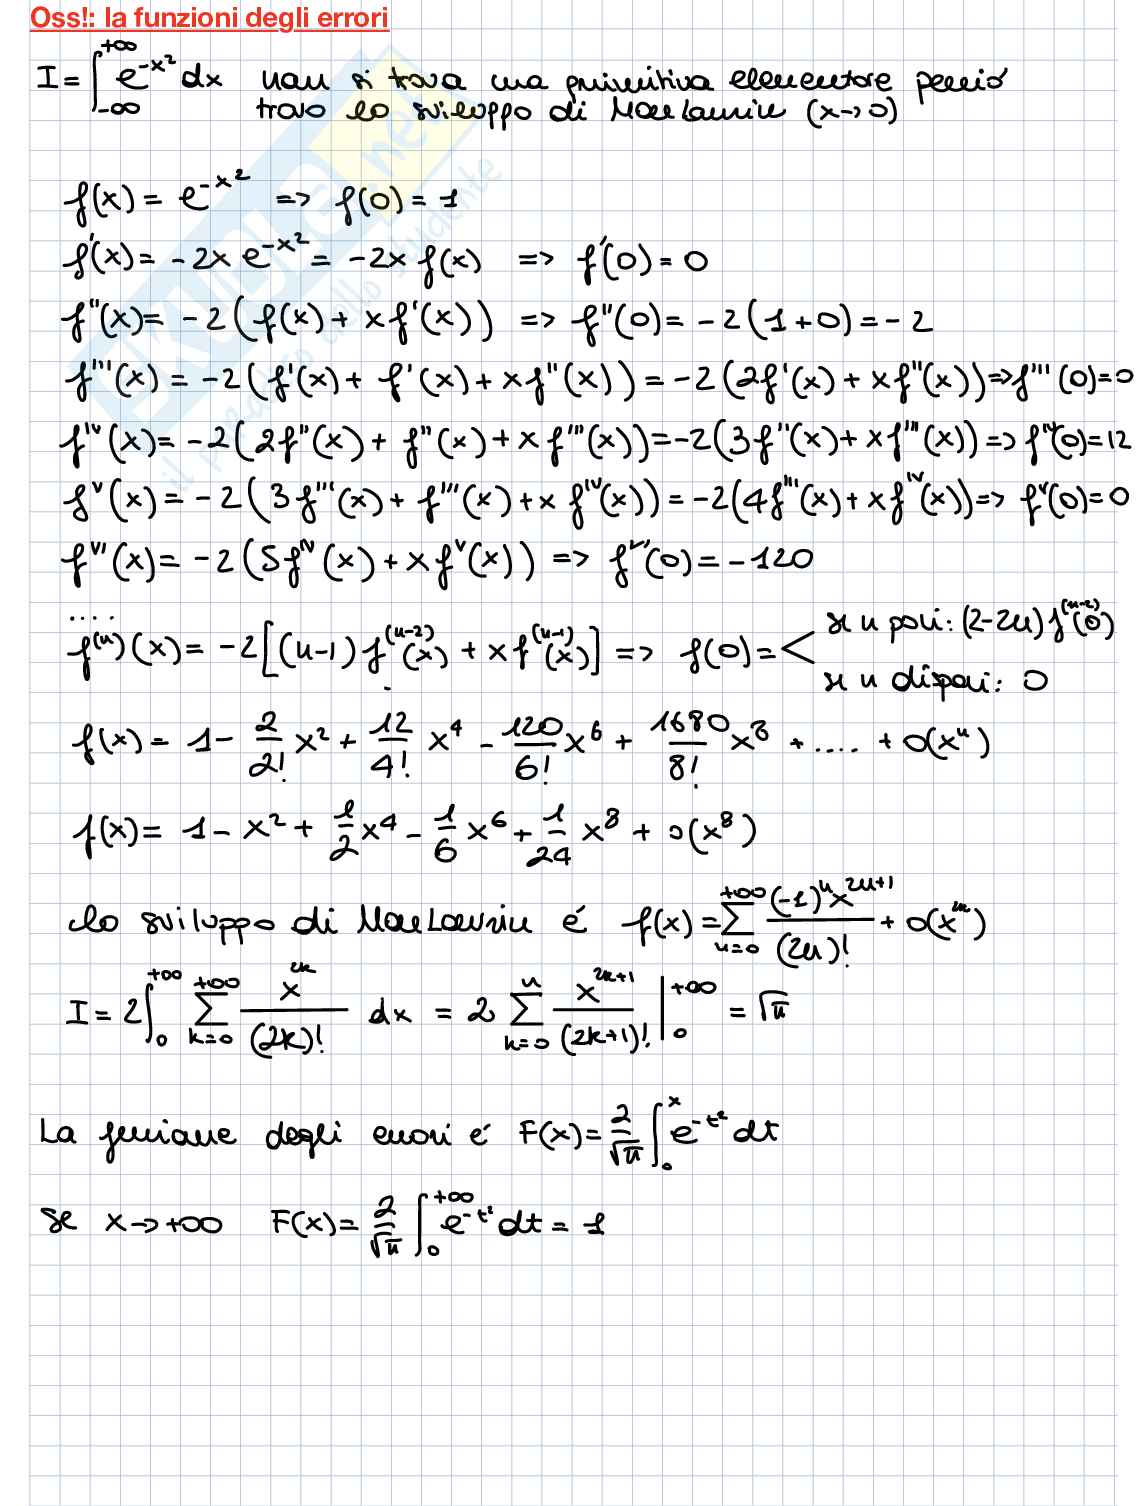 Oss!: la funzioni degli errori
I = ∫_{-∞}^{+∞} e^{-x²} dx non si trova una primitiva elementare perciò
trovo lo sviluppo di MacLaurin (x→0)
f(x) = e^{-x²} => f(0) = 1
f'(x) = -2x e^{-x²} = -2x f(x) => f'(0) = 0
f''(x) = -2(f(x) + x f'(x)) => f''(0) = -2(1+0) = -2
f'''(x) = -2(f'(x) + f'(x) + x f''(x)) = -2(2f'(x) + x f''(x)) => f'''(0) = 0
f^{IV}(x) = -2(2f''(x) + f''(x) + x f'''(x)) = -2(3f''(x) + x f'''(x)) => f^{IV}(0) = 12
f^{V}(x) = -2(3f'''(x) + f'''(x) + x f^{IV}(x)) = -2(4f'''(x) + x f^{IV}(x)) => f^{V}(0) = 0
f^{VI}(x) = -2(5f^{IV}(x) + x f^{V}(x)) => f^{VI}(0) = -120
....
f^{(n)}(x) = -2[(n-1) f^{(n-2)}(x) + x f^{(n-1)}(x)] => f(0) = < se n pari: (2-2n) f^{(n-2)}(0)
se n dispari: 0
f(x) = 1 - 2/2! x² + 12/4! x⁴ - 120/6! x⁶ + 1680/8! x⁸ + .... + o(xⁿ)
f(x) = 1 - x² + 1/2 x⁴ - 1/6 x⁶ + 1/24 x⁸ + o(x⁸)
lo sviluppo di MacLaurin é f(x) = ∑_{n=0}^{+∞} (-1)ⁿ x^{2n+1}/(2n)! + o(x^{2n})
I = 2 ∫_0^{+∞} ∑_{k=0}^{+∞} x^{2k}/(2k)! dx = 2 ∑_{k=0}^{n} x^{2k+1}/(2k+1)! |_0^{+∞} = √π
La funzione degli errori é F(x) = 2/√π ∫_0^x e^{-t²} dt
se x→+∞ F(x) = 2/√π ∫_0^{+∞} e^{-t²} dt = 1
SKUOLA.net
il paradiso dello studente